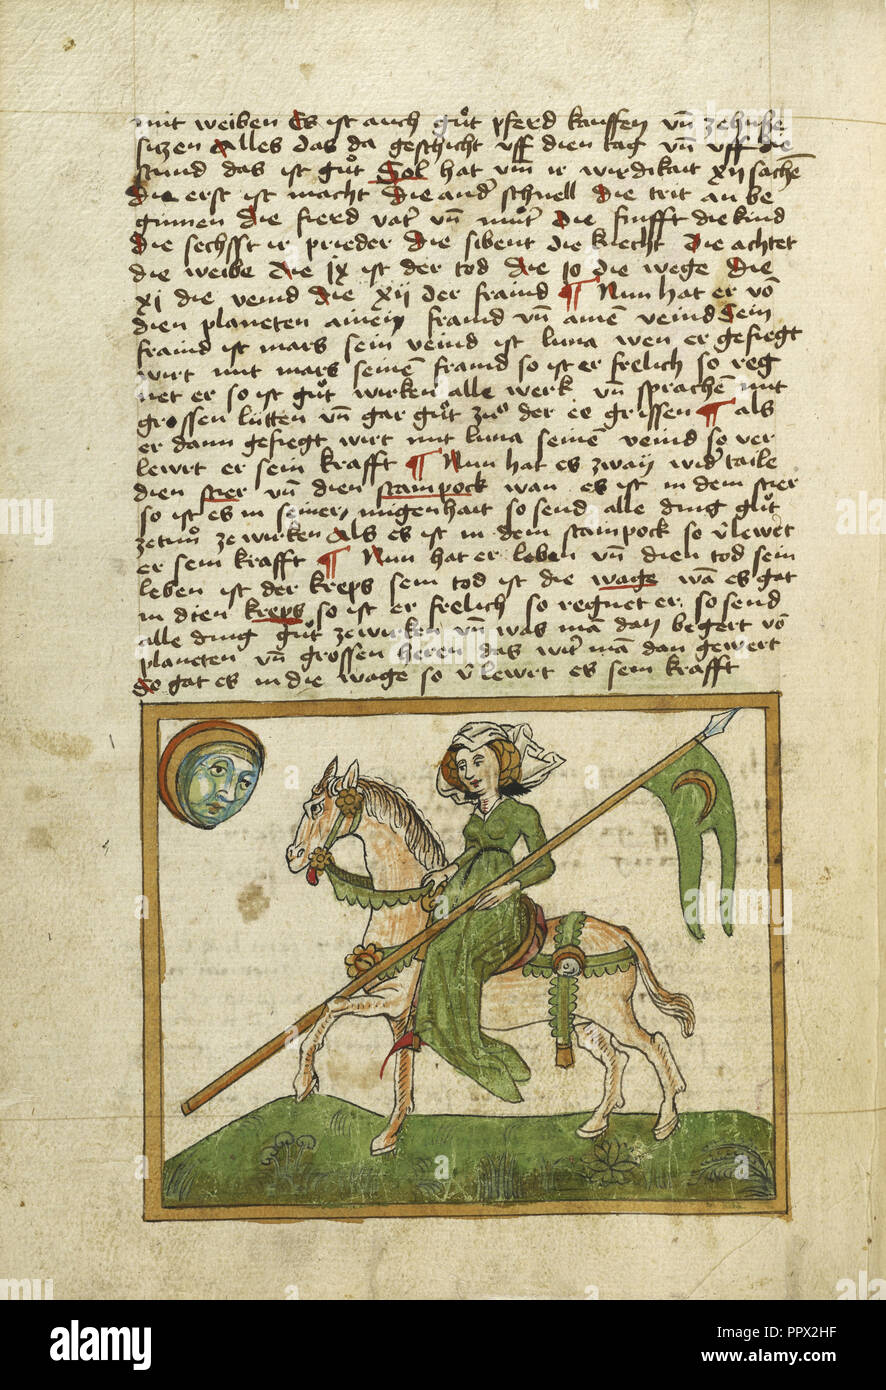 mit weiben Es ist auch guͦt pferd kauffen vn̄ ze huse
sizen Alles das da geschicht vff dien tag vn̄ vff die
stund das ist guͦt Sol hat vm̄ ir wirdikait xij sachē
Die erst ist macht die and̄ schnell die trit an be
ginnen die fierd vat̄ vn̄ muͦt̄ die finfft die kind
die sechsst ir prieder die sibent die knecht die achtet
die weibe die jx ist der tod die jo die wege die
xj die veind die xij der fraind ¶ Nun hat er vō
dien planeten ainen fraind vn̄ ainē veind Sein
fraind ist mars sein veind ist luna wen er gefiegt
wirt mit mars seinē fraind so ist er frelich so reg
net er so ist guͦt wirken alle werk vn̄ sprachē mit
grossen lütten vn̄ gar guͦt zuͦ der es grissen ¶ als
er dann gefiegt wirt mit luna seinē veind so ver
lewrt er sein krafft ¶ Nun hat es zwaij wid̄taile
dien stier vn̄ dien stainpock wan es ist in dem stier
so ist es in seiner mugenhait so send alle ding guͦt
ze wirken Als es ist in dem stainpock so v̄lewrt
er sein krafft ¶ Nun hat er leben vn̄ dien tod sein
leben ist der kreps sein tod ist die wage wā es gat
in dien kreps so ist er frelich so regnet er so send
alle ding guͦt ze wirken vn̄ was mā dan begert vō
planeten vn̄ grossen heren das wirt̄ mā dan gewert
So gat es in die wage so v̄lewrt es sein krafft
alamy
alamy
Image ID: PPX2HF
www.alamy.com